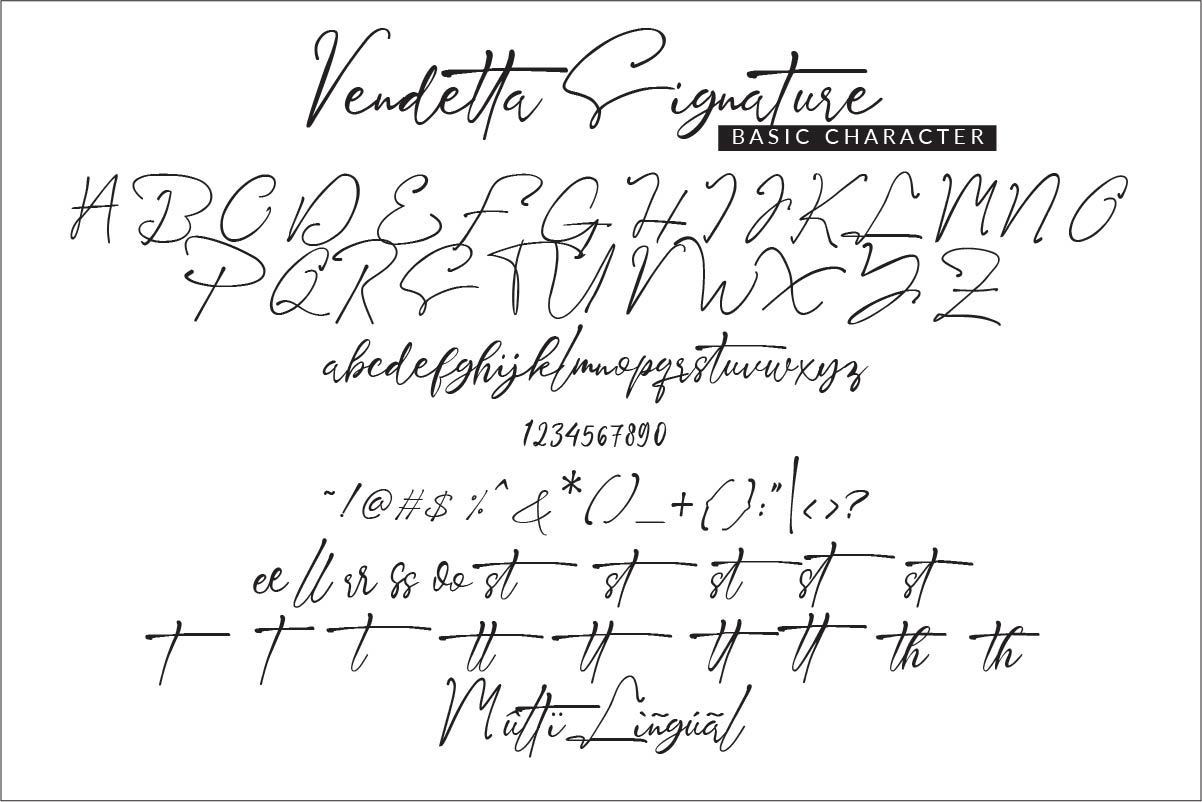 Vendetta Signature
BASIC CHARACTER
A B C D E F G H I J K L M N O
P Q R S T U V W X Y Z
abcdefghijklmnopqrstuvwxyz
1234567890
~!@#$%^&*()_+{}:"|<>?
ee ll rr ss oo st st st st st
t t t tt tt tt tt th th
Mûltï Lìñgúãl